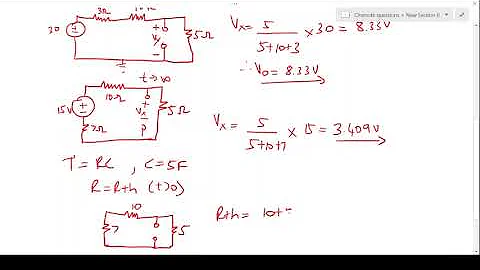 Chenote questions » New Section (
3Ω 10Ω
30 ± + Vx - 5Ω
Vx = 5 / 5+10+3 × 30 = 8.33V
∴ V0 = 8.33V
t→∞
10Ω
15V ± + Vx 5Ω
7Ω
Vx = 5 / 5+10+7 × 15 = 3.409V
T = RC , C = 5F
R = Rth (t>0)
10
7 5
Rth = 10+